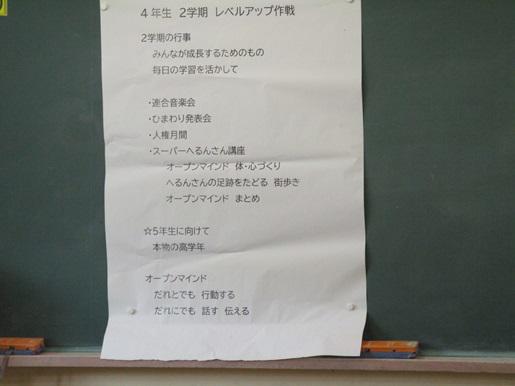 ４年生 2学期 レベルアップ作戦
2学期の行事
みんなが成長するためのもの
毎日の学習を活かして
・連合音楽会
・ひまわり発表会
・人権月間
・スーパーへるんさん講座
オープンマインド 体・心づくり
へるんさんの足跡をたどる 街歩き
オープンマインド まとめ
☆５年生に向けて
本物の高学年
オープンマインド
だれとでも 行動する
だれにでも 話す 伝える